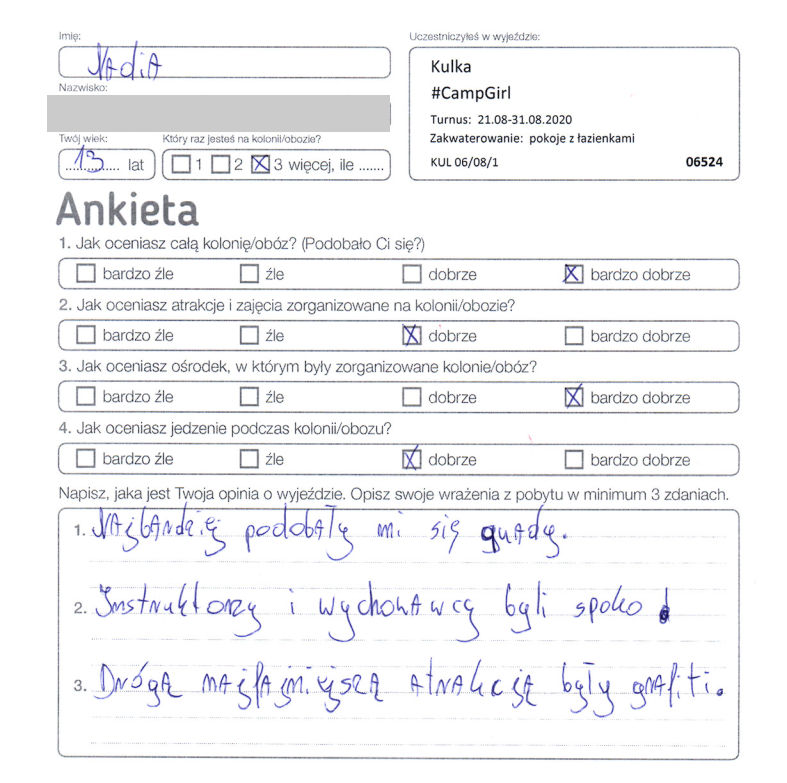 Imię:
NAdiA
Uczestniczyłeś w wyjeździe:
Kulka
#CampGirl
Turnus: 21.08-31.08.2020
Zakwaterowanie: pokoje z łazienkami
KUL 06/08/1 06524
Nazwisko:
Twój wiek:
13 lat
Który raz jesteś na kolonii/obozie?
1 2 3 więcej, ile .......
Ankieta
1. Jak oceniasz całą kolonię/obóz? (Podobało Ci się?)
bardzo źle źle dobrze bardzo dobrze
2. Jak oceniasz atrakcje i zajęcia zorganizowane na kolonii/obozie?
bardzo źle źle dobrze bardzo dobrze
3. Jak oceniasz ośrodek, w którym były zorganizowane kolonie/obóz?
bardzo źle źle dobrze bardzo dobrze
4. Jak oceniasz jedzenie podczas kolonii/obozu?
bardzo źle źle dobrze bardzo dobrze
Napisz, jaka jest Twoja opinia o wyjeździe. Opisz swoje wrażenia z pobytu w minimum 3 zdaniach.
1. NAjbArdziej podobAły mi się quAdy.
2. Instruktorzy i wychowAwcy byli spoko
3. Drógą nAjfAjniejszą AtrAkcją były grAfiti.